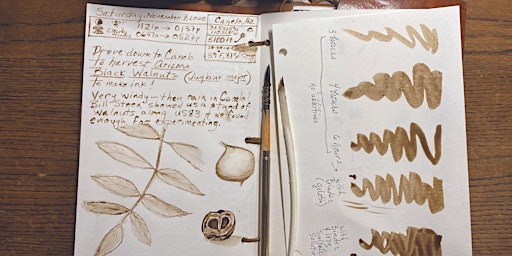 Saturday, November 7, 2020
Canelo, AZ
1121a → 0137p
0647a → 0527p
5100 ft
Drove down to Canelo
to harvest Arizona
Black Walnuts (Juglans major)
to make ink!
Very windy — then rain in Canelo!
Bill Steen showed us a stand of
walnuts along US83 & we found
enough for experimenting.
3 hours
4 hours
no additives
6 hours
with
Binder
with
Binder